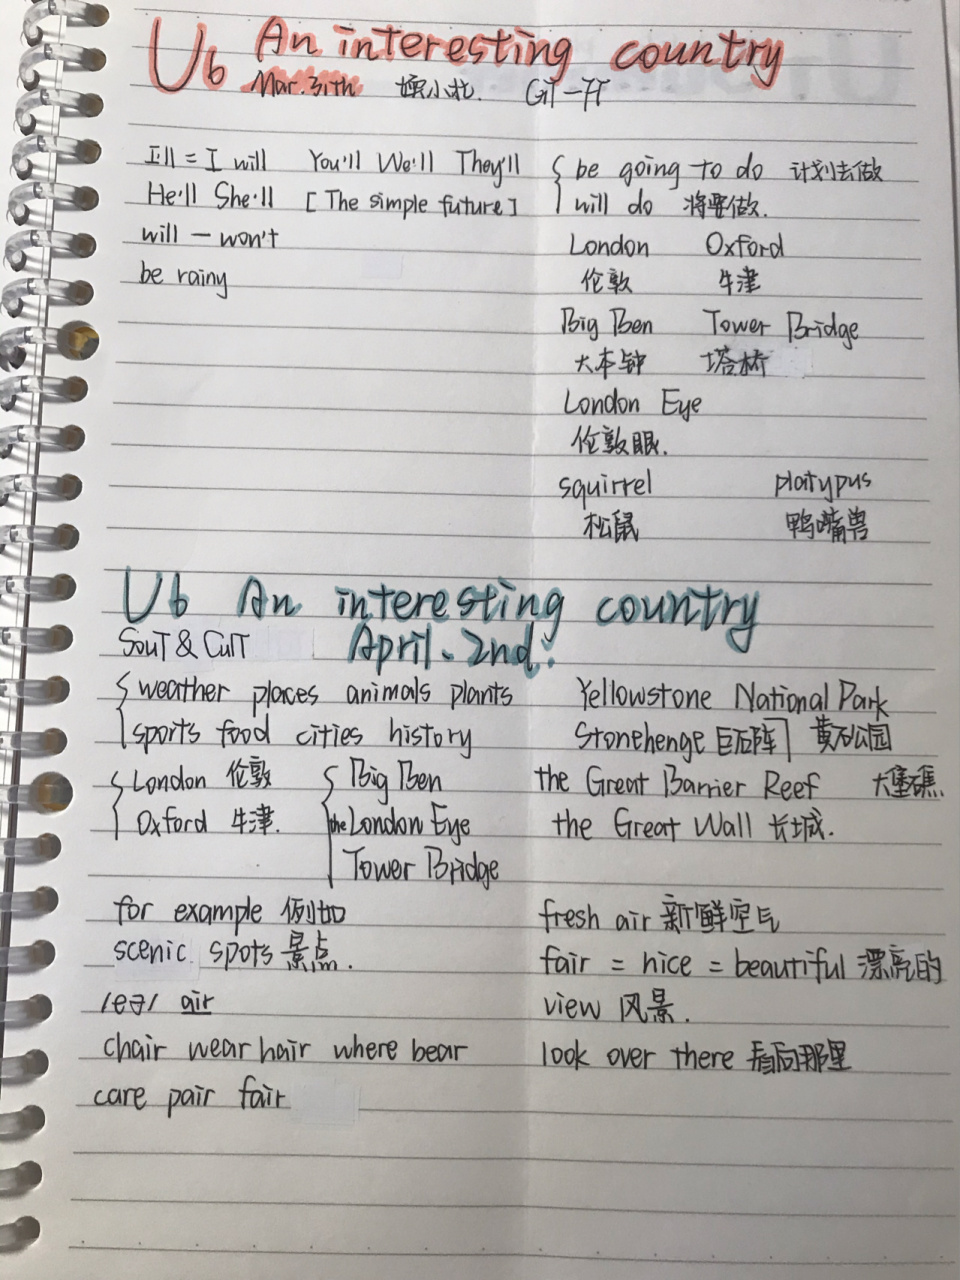 U6 An interesting country
Mar. 31th 顾小北. GT-FF
I'll = I will You'll We'll They'll
He'll She'll [The simple future]
will — won't
be rainy
be going to do 计划去做
will do 将要做.
London Oxford
伦敦 牛津
Big Ben Tower Bridge
大本钟 塔桥
London Eye
伦敦眼.
squirrel platypus
松鼠 鸭嘴兽
U6 An interesting country
SouT & CulT April. 2nd.
weather places animals plants
sports food cities history
London 伦敦
Oxford 牛津.
Big Ben
the London Eye
Tower Bridge
for example 例如
scenic spots 景点.
/eə/ air
chair wear hair where bear
care pair fair
Yellowstone National Park
Stonehenge 巨石阵 黄石公园
the Great Barrier Reef 大堡礁.
the Great Wall 长城.
fresh air 新鲜空气
fair = nice = beautiful 漂亮的
view 风景.
look over there 看向那里